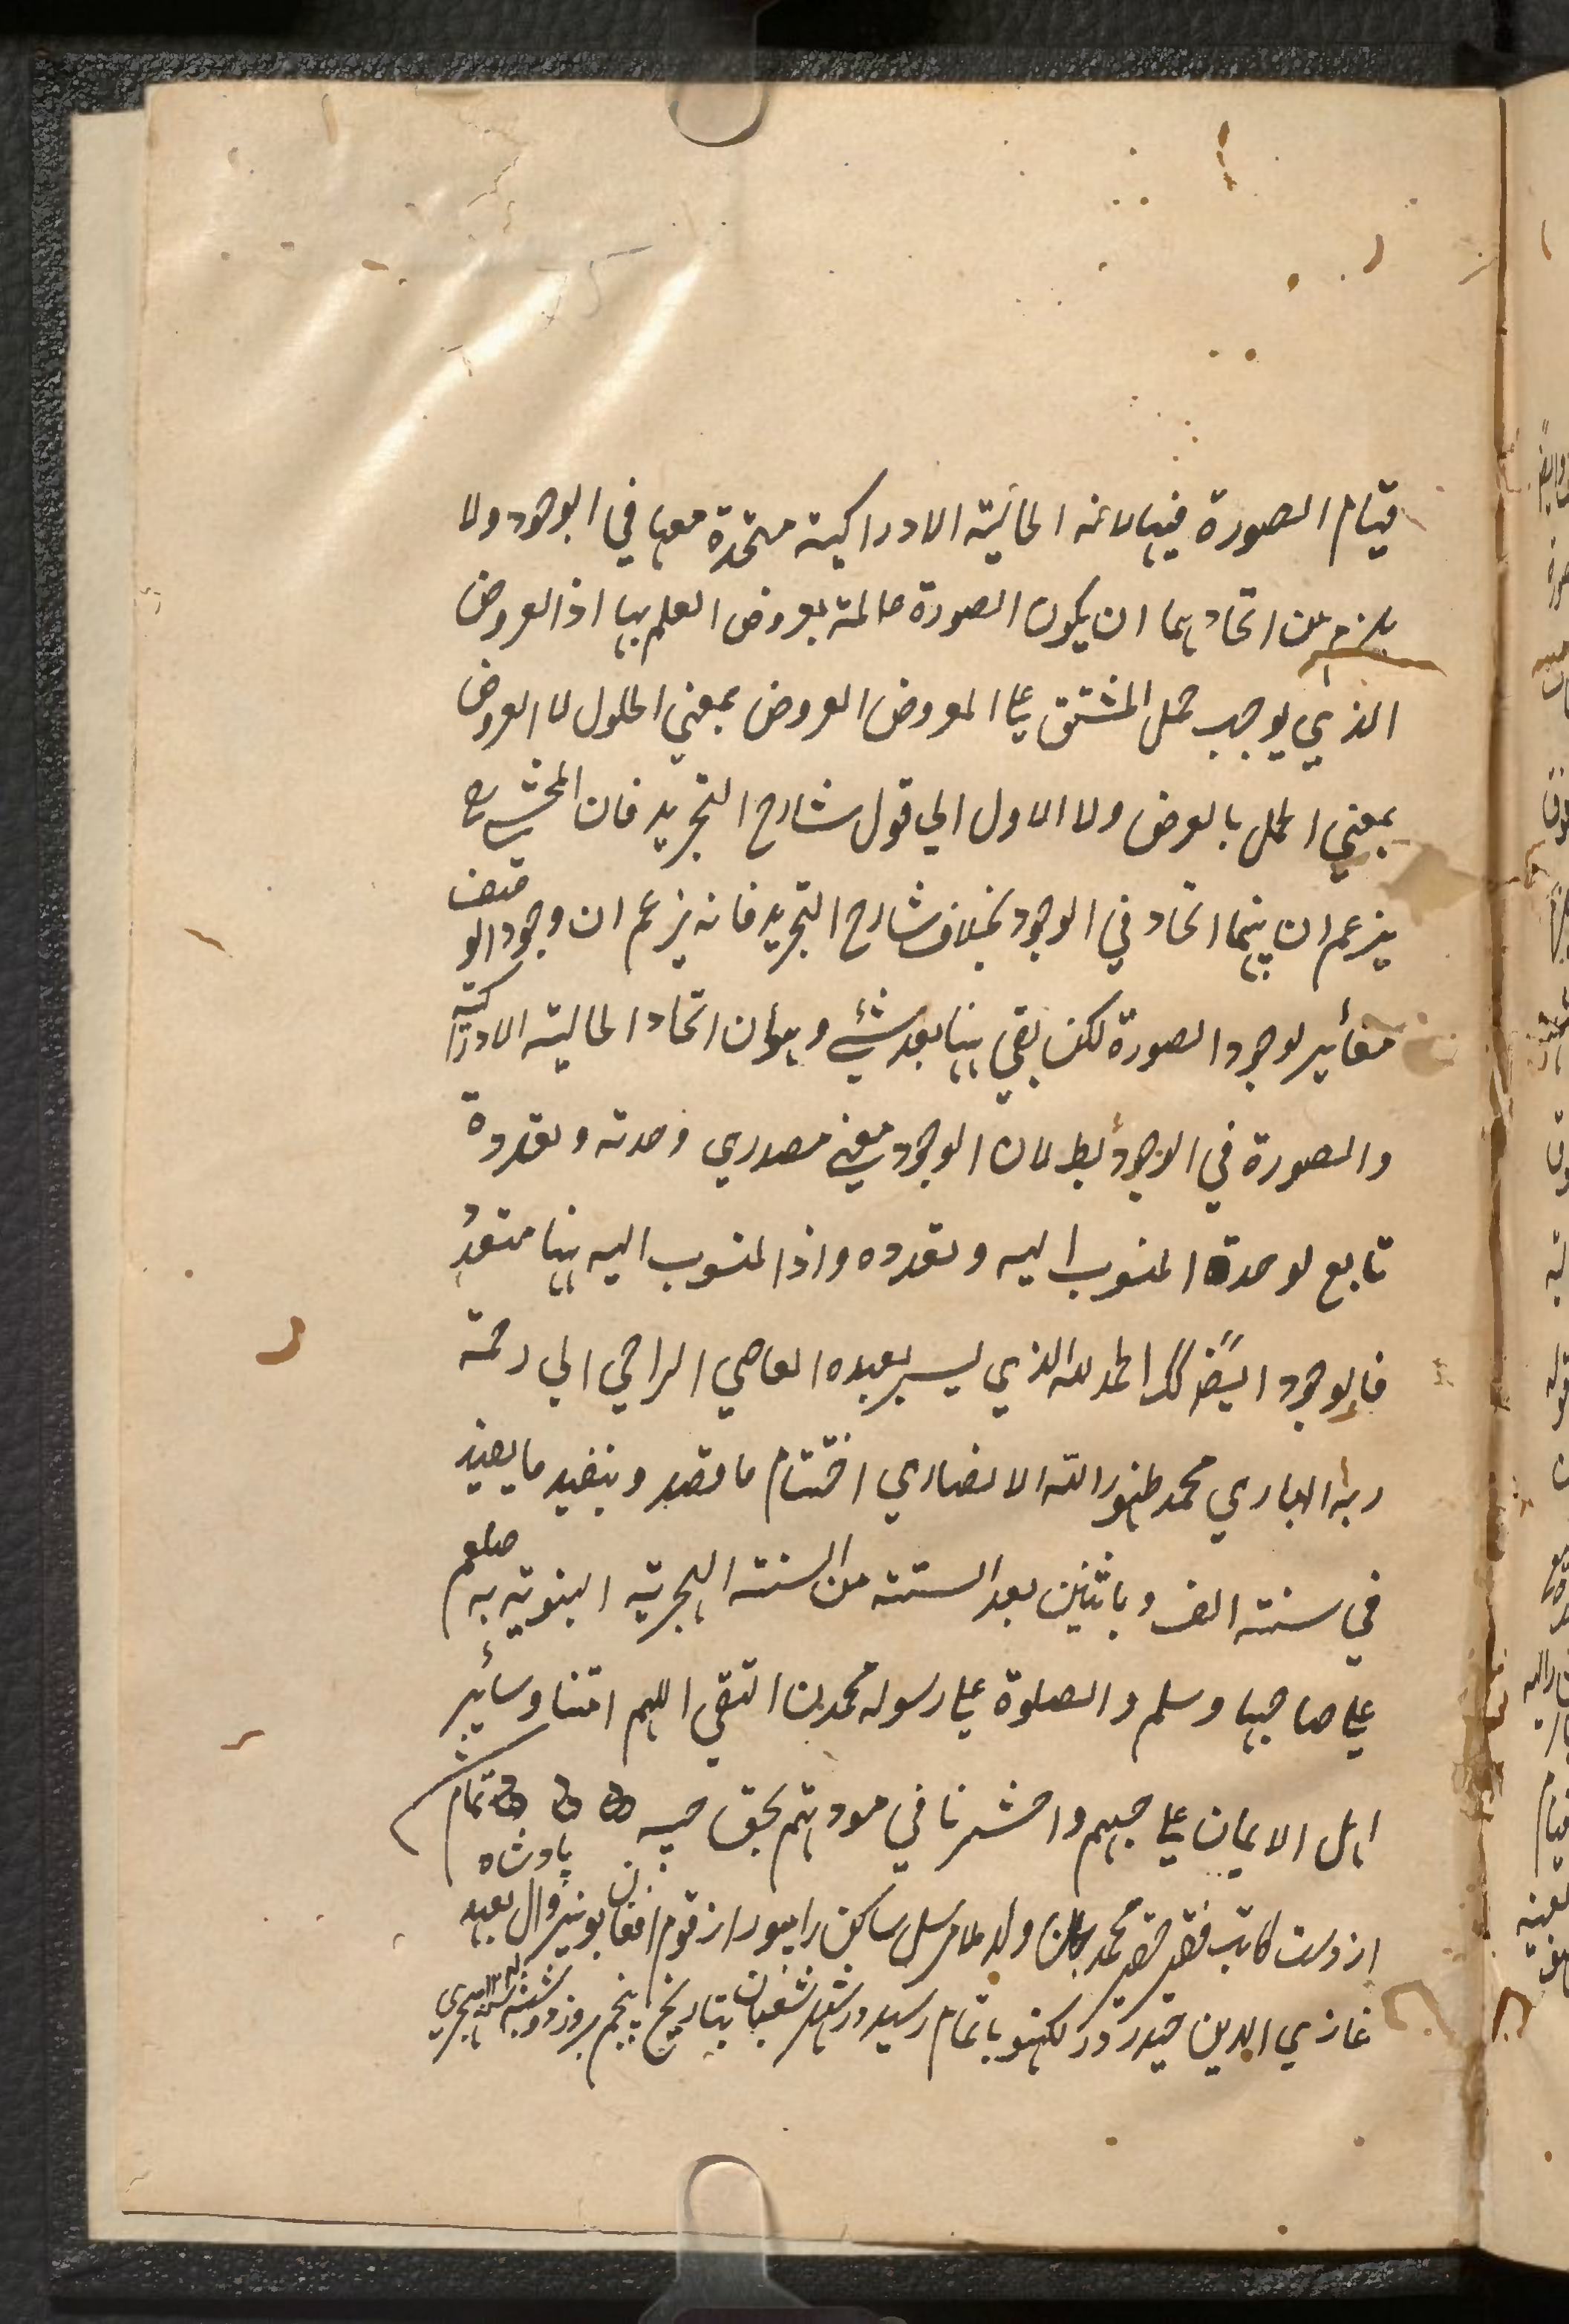 قيام الصورة فيها لانه الحالية الادراكية متحدة معها في الوجود ولا
يلزم من اتحادهما ان يكون الصورة عالمة بعروض العلم بها اذ العروض
الذي يوجب حمل المشتق على المعروض العروض بمعني الحلول لا العروض
بمعني الحمل بالعرض ولا الاول الي قول شارح التجريد فان المحشي رح
يزعم ان بينهما اتحاد في الوجود بخلاف شارح التجريد فانه يزعم ان وجود الو
قيف
مغائير لوجود الصورة لكن بقي ههنا بعد شئ وهو ان اتحاد الحالية الادراكية
والصورة في الوجود بط لان الوجود معني مصدري وحدته وتعدده
تابع لوحدة المنسوب اليه وتعدده واذ المنسوب اليه ههنا متعدد
فالوجود ايضا كك الحمد لله الذي يسر بعبده العاصي الراجي الي رحمة
ربه الباري محمد ظهور الله الانصاري اختتام ما قصد وينفيد ما يفيد
في سنة الف وباثنين بعد الستة من السنة الهجرية النبوية به صلعم
علي صاحبها وسلم والصلوة علي رسوله محمد بن التقي اللهم امتنا وسائير
اهل الايمان علي حبهم واحشرنا في مودتهم بحق حبه تمام
از دست كاتب فقير حقير محمد ولد ملا مرسل ساكن رامپور از قوم افغان بونير وال بعهد پادشاه
غازي الدين حيدر در لكهنو باتمام رسيد در شهر شعبان بتاريخ پنجم بروز دوشنبه هجري